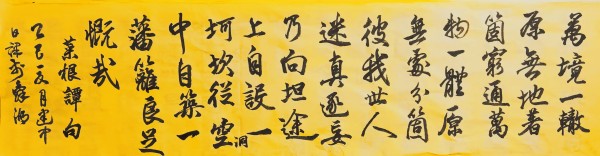 萬境一轍
原無地著
箇窮通萬
物一體原
無處分箇
彼我世人
迷真逐妄
乃向坦途
上自設一
坷坎從空洞
中自築一
藩籬良足
慨哉
菜根譚句
乙巳
日課